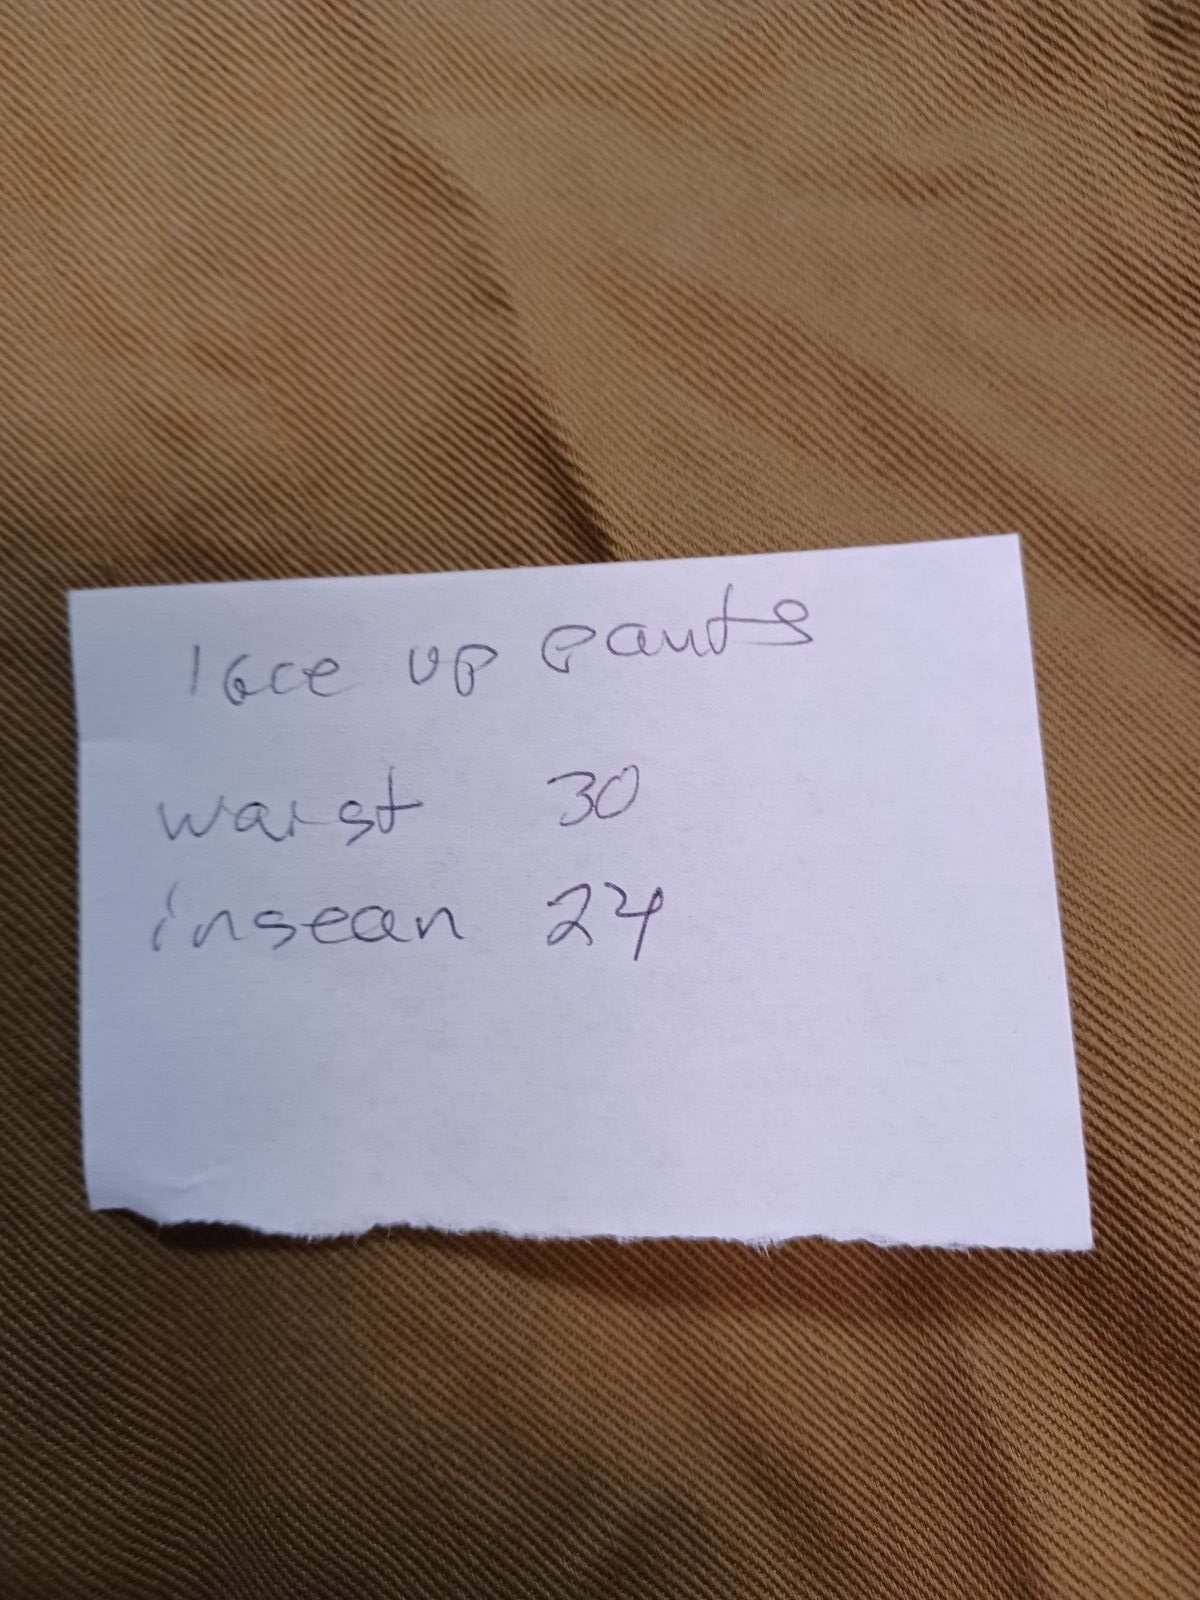 lace up pants
waist 30
insean 24